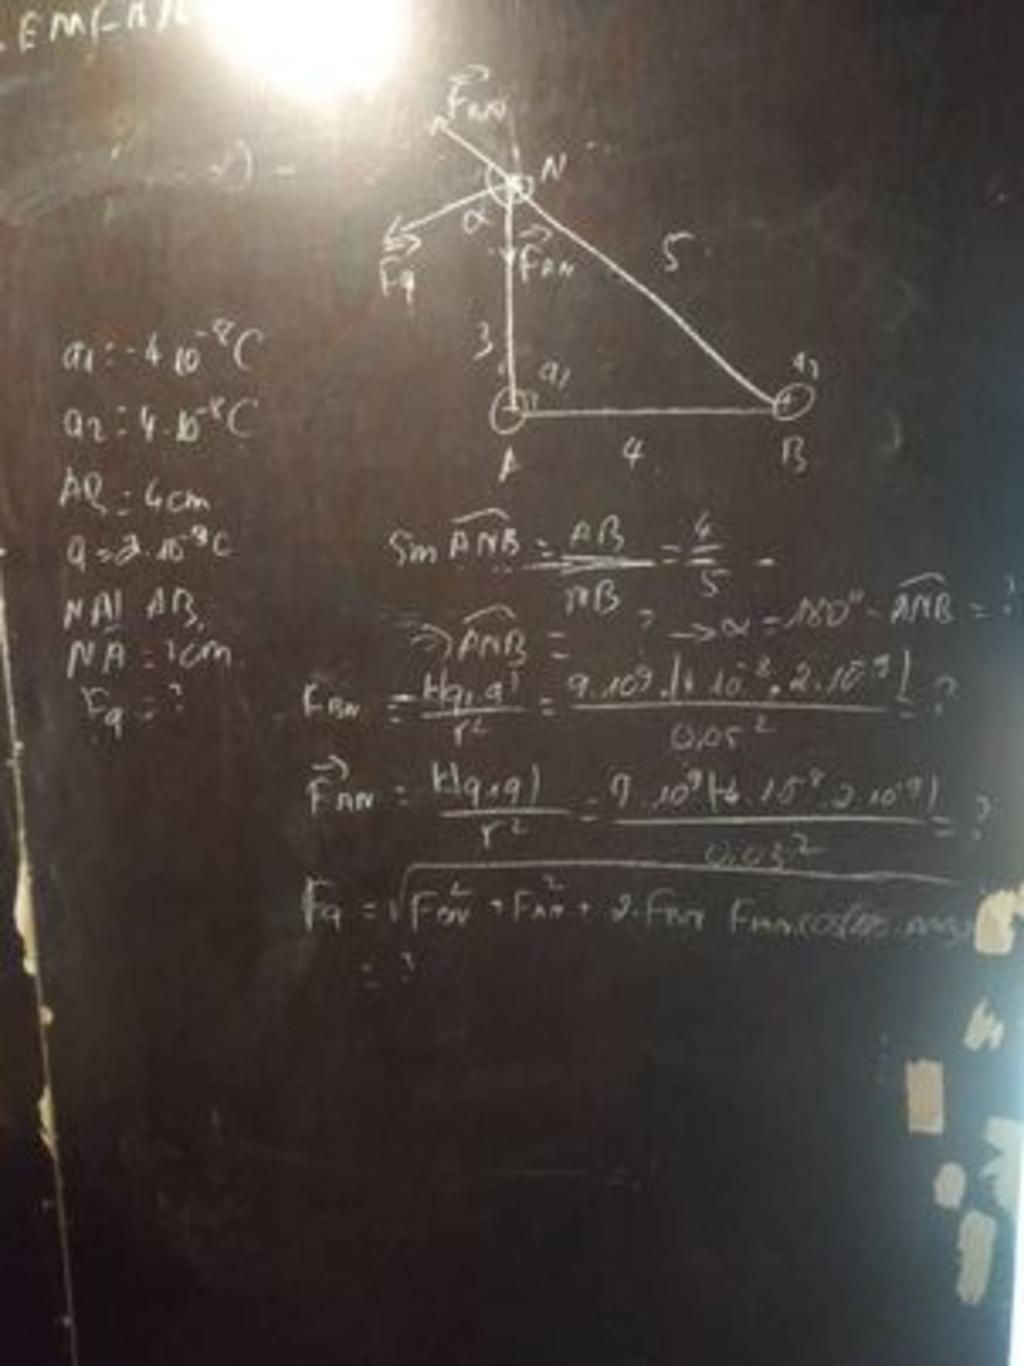 N
α
5
3
4
A
B
q1 = -4 10⁻⁸C
q2 = 4.10⁻⁸C
AB = 4cm
q = 2.10⁻⁹C
NA⊥AB,
Fq = ?
Sin ANB = AB/NB = 4/5
⇒ ANB = ? → α = 180° - ANB = ?
FBN = k|q.q|/r² = 9.10⁹.|4 10⁻⁸.2.10⁻⁹|/0,05² = ?
FAN = k|q.q|/r² = 9.10⁹|4.10⁻⁸.2.10⁻⁹|/0,03² = ?
Fq = √FBN² + FAN² + 2.FBN FAN cos
= ?